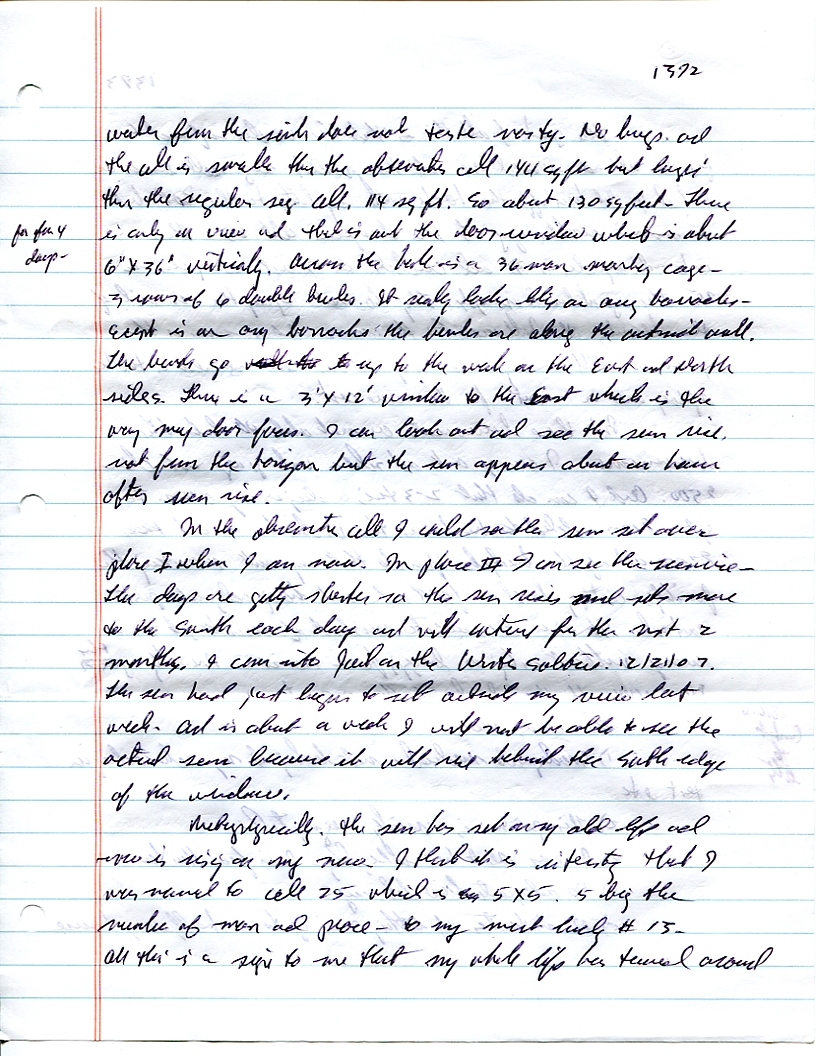 1372
water from the sink does not taste nasty. No bugs. ad
the cell is smaller than the observation cell 144 sq ft but larger
than the regular seg cell. 114 sq ft. So about 130 sq feet - There
is only one view ad that is out the door window which is about
for often 4
days -
6" X 36" vertically. Across the hall is a 36 man cage -
3 rows of 6 double bunks. It really looks like an army barracks -
Except in an army barracks the bunks are along the outside wall.
The bunks go up to the wall on the East ad North
sides. There is a 3' X 12' window to the East which is the
way my door faces. I can look out ad see the sun rise.
not from the horizon but the sun appears about an hour
after sun rise.
In the observation cell I could see the sun set over
place I where I am now. In place III I can see the sunrise -
The days are getting shorter so the sun rises and sets more
to the South each day ad will continue for the next 2
months. I came into Jail on the Winter Solstice. 12/21/07.
The sun had just begun to set outside my view last
week - ad in about a week I will not be able to see the
actual sun because it will rise behind the South edge
of the window.
Metaphysically. the sun has set on my old life ad
now is rising on my new. I think it is interesting that I
was moved to cell 25 which is 5 X 5. 5 being the
number of man ad place - to my most lucky # 13 -
all this is a sign to me that my whole life has turned around